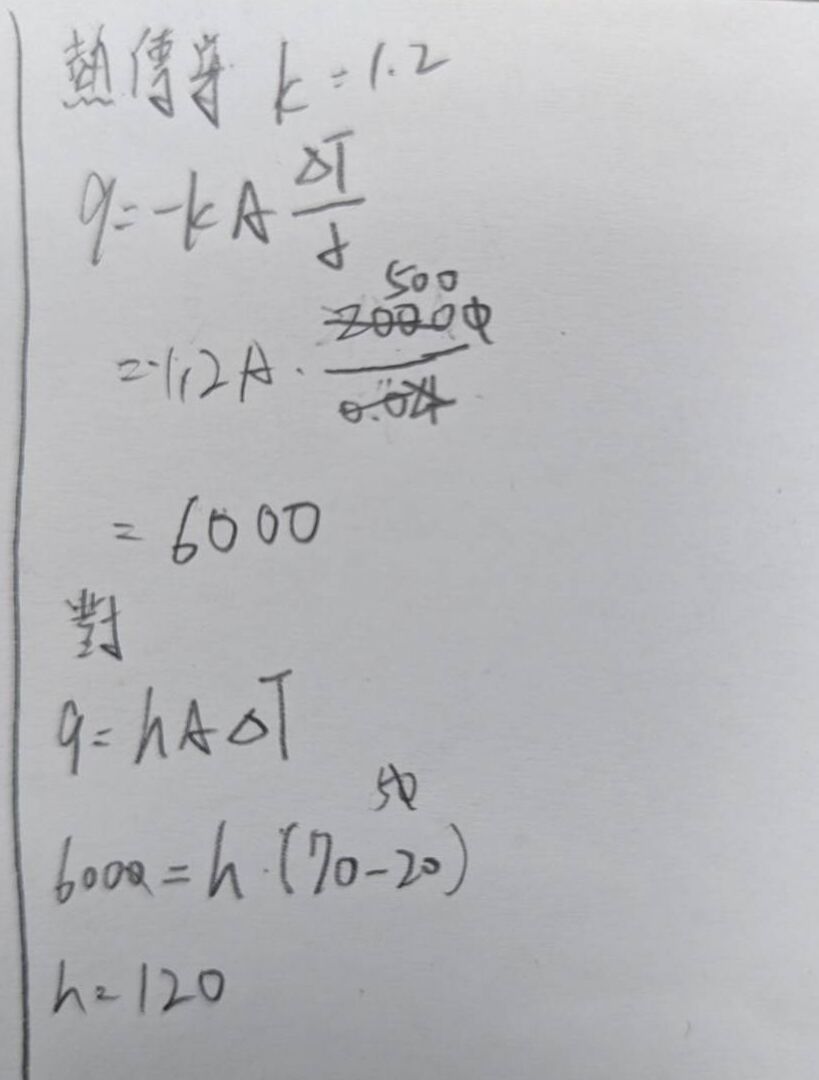 熱傳導 k=1.2
q=-kA ΔT/d
500
=-1.2A · 20000/0.04
= 6000
對
q=hAΔT
50
6000=h·(70-20)
h=120